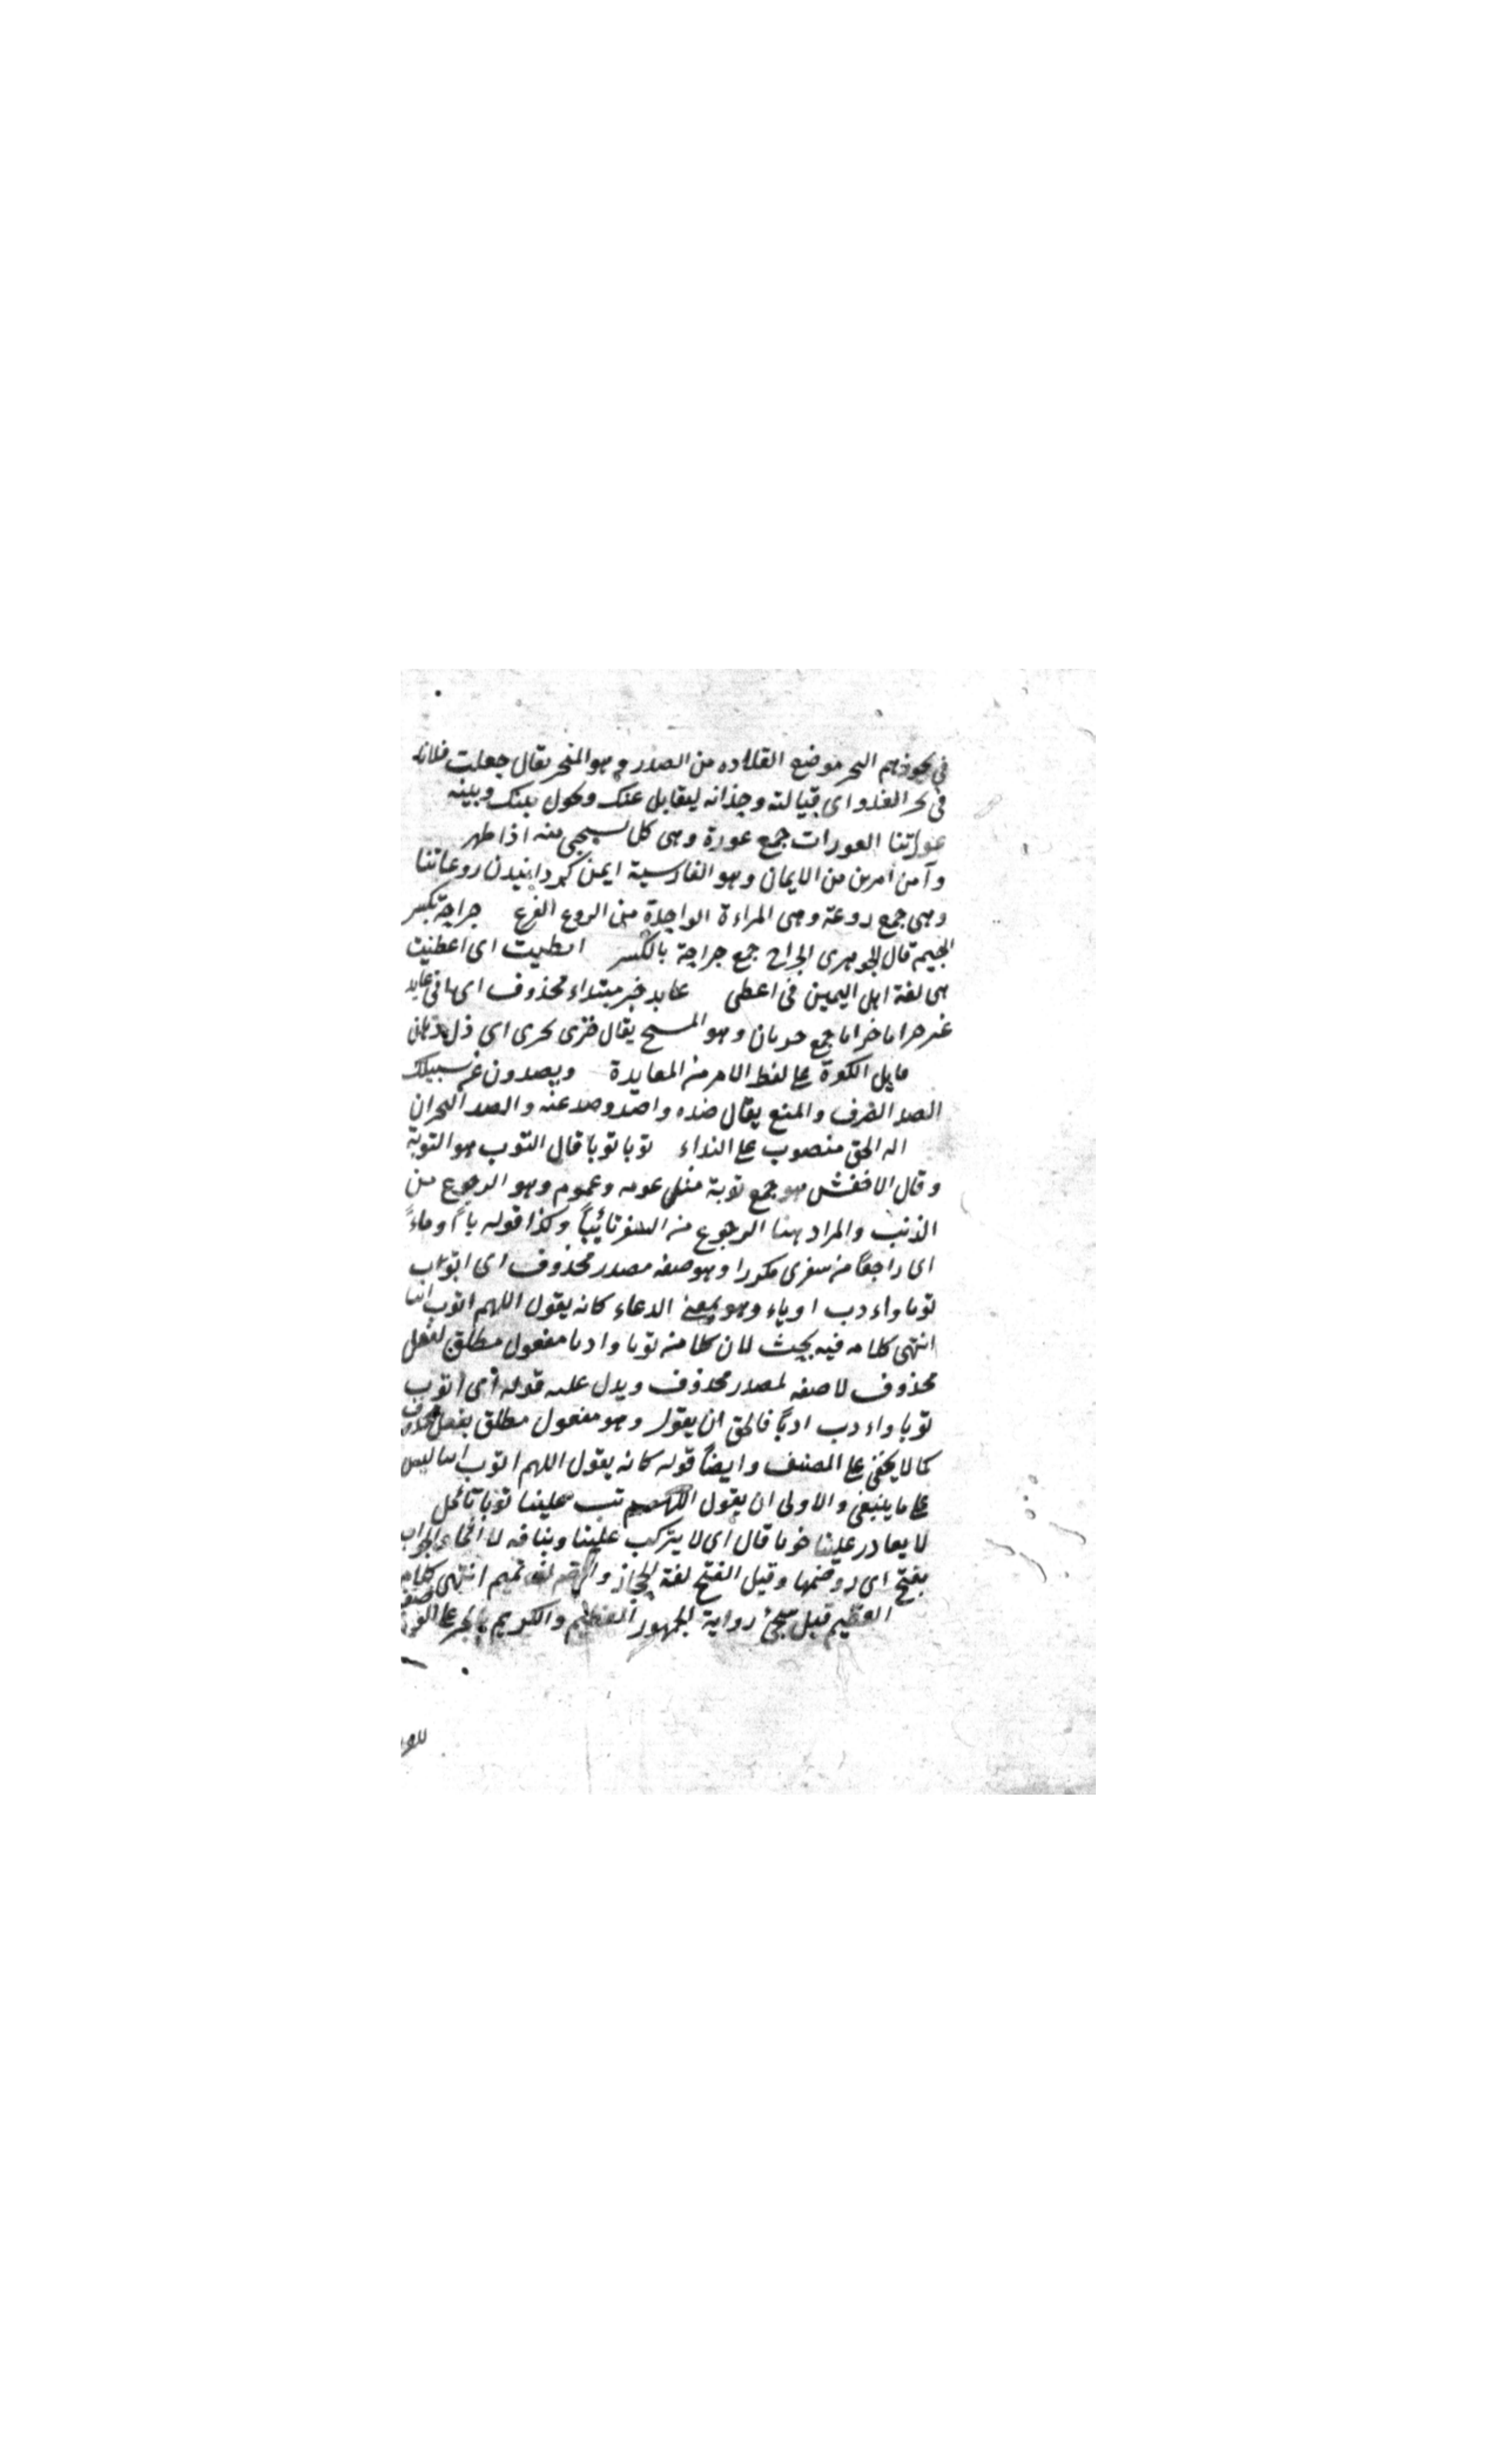 في نحورهم النحر موضع القلاده من الصدر وهو المنحر يقال جعلت فلانا
في نحر العدو اى قبالته وحذاءه ليقابل عنك ويحول بينك وبينه
عوراتنا العورات جمع عورة وهى كل يستحيى منه اذا ظهر
وآمن امر من الايمان وهو الفارسية ايمن كردانيدن روعاتنا
وهى جمع روعة وهى المراءة الواحدة من الروع الفزع جراحة بكسر
الجيم قال الجوهرى الجراح جمع جراحة بالكسر انطيت اى اعطيت
هى لغة اهل اليمين فى اعطى عايد خبر مبتداء محذوف اى انى عايد
غير حزايا خزايا جمع خزيان وهو المستحى يقال خزى يخرى اى ذل وهان
قاتل الكفرة على لفظ الامر من المعايدة ويصدون عن سبيلك
الصد الصرف والمنع يقال صده واصده وصد عنه والصد الهجران
اله الحق منصوب على النداء توبا توبا قال التوب هو التوبة
وقال الاخفش هو جمع توبة مثل عومه وعموم وهو الرجوع من
الذنب والمراد هنا الرجوع من السفر تائباً وكذا قوله
اى راجعاً من سفرى مكررا وهو صفه مصدر محذوف اى اتوب
توبا واءدب اوباء وهو بمعنى الدعاء كانه يقول اللهم اتوب
انتهى كلامه فيه بحيث لان كلا من توبا واوبا مفعول مطلق لفعل
محذوف لا صفه لمصدر محذوف ويدل عليه قوله اى اتوب
توبا واءدب اوباً فالحق ان يقول وهو مفعول مطلق بفعل محذوف
كما لا يخفى على المصنف وايضاً قوله كانه يقول اللهم اتوب ليس
على ما ينبغى والاولى ان يقول اللهم تب علينا توبا
لا يغادر علينا حوبا قال اى لا يترك علينا
بفتح اى وضمها وقيل الفتح لغة الحجاز والضم لغة تميم انتهى كلامه
العظيم قبل رواية الجمهور العظيم والكريم بالجر على